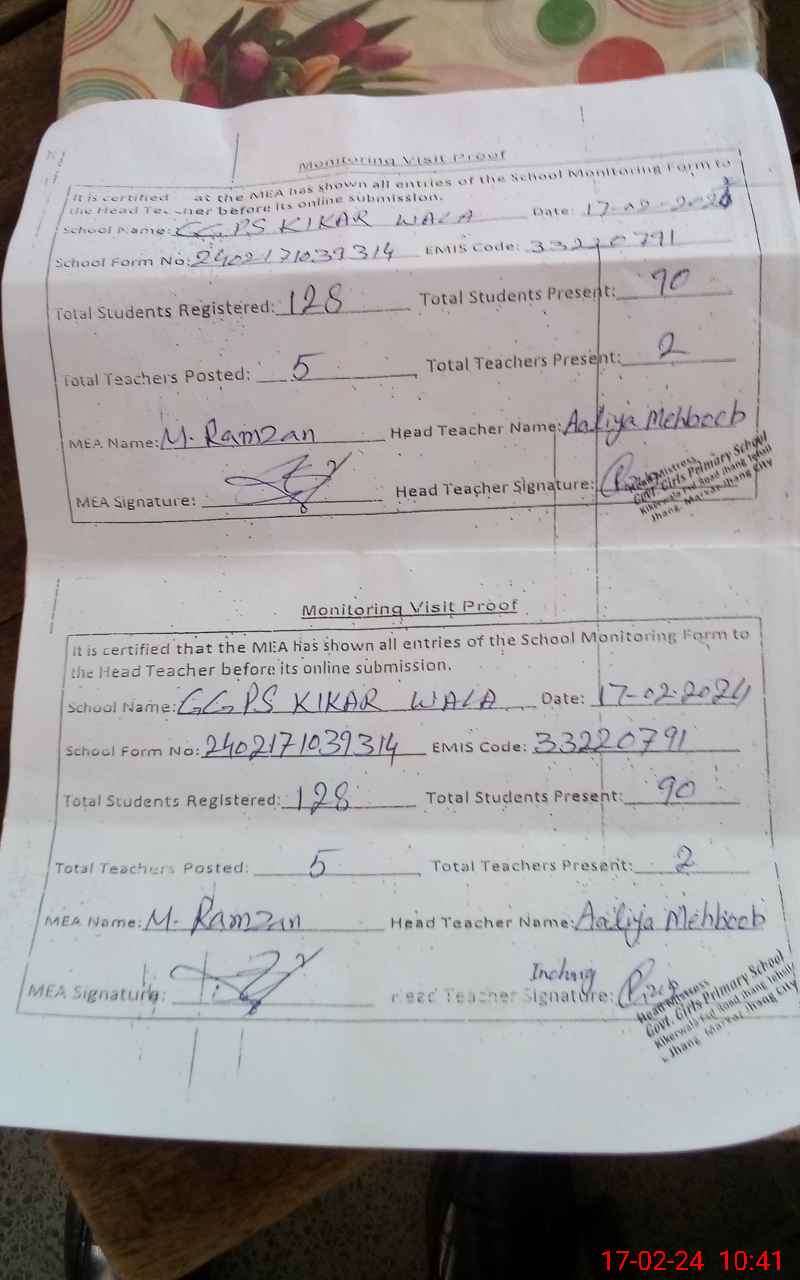 Monitoring Visit Proof
It is certified at the MEA has shown all entries of the School Monitoring Form to
the Head Teacher before its online submission.
School Name: GGPS KIKAR WALA Date: 17-02-2024
School Form No: 2402171039314 EMIS Code: 33220791
Total Students Registered: 128 Total Students Present: 90
Total Teachers Posted: 5 Total Teachers Present: 2
MEA Name: M. Ramzan Head Teacher Name: Aaliya Mehboob
MEA Signature: Head Teacher Signature:
Head Mistress
Govt. Girls Primary School
Jhang City
Monitoring Visit Proof
It is certified that the MEA has shown all entries of the School Monitoring Form to
the Head Teacher before its online submission.
School Name: GGPS KIKAR WALA Date: 17-02-2024
School Form No: 2402171039314 EMIS Code: 33220791
Total Students Registered: 128 Total Students Present: 90
Total Teachers Posted: 5 Total Teachers Present: 2
MEA Name: M. Ramzan Head Teacher Name: Aaliya Mehboob
Incharg
MEA Signature: Head Teacher Signature:
Head Mistress
Govt. Girls Primary School
Kikerwala Road Jhang
Jhang. Markaz Jhang City
17-02-24 10:41